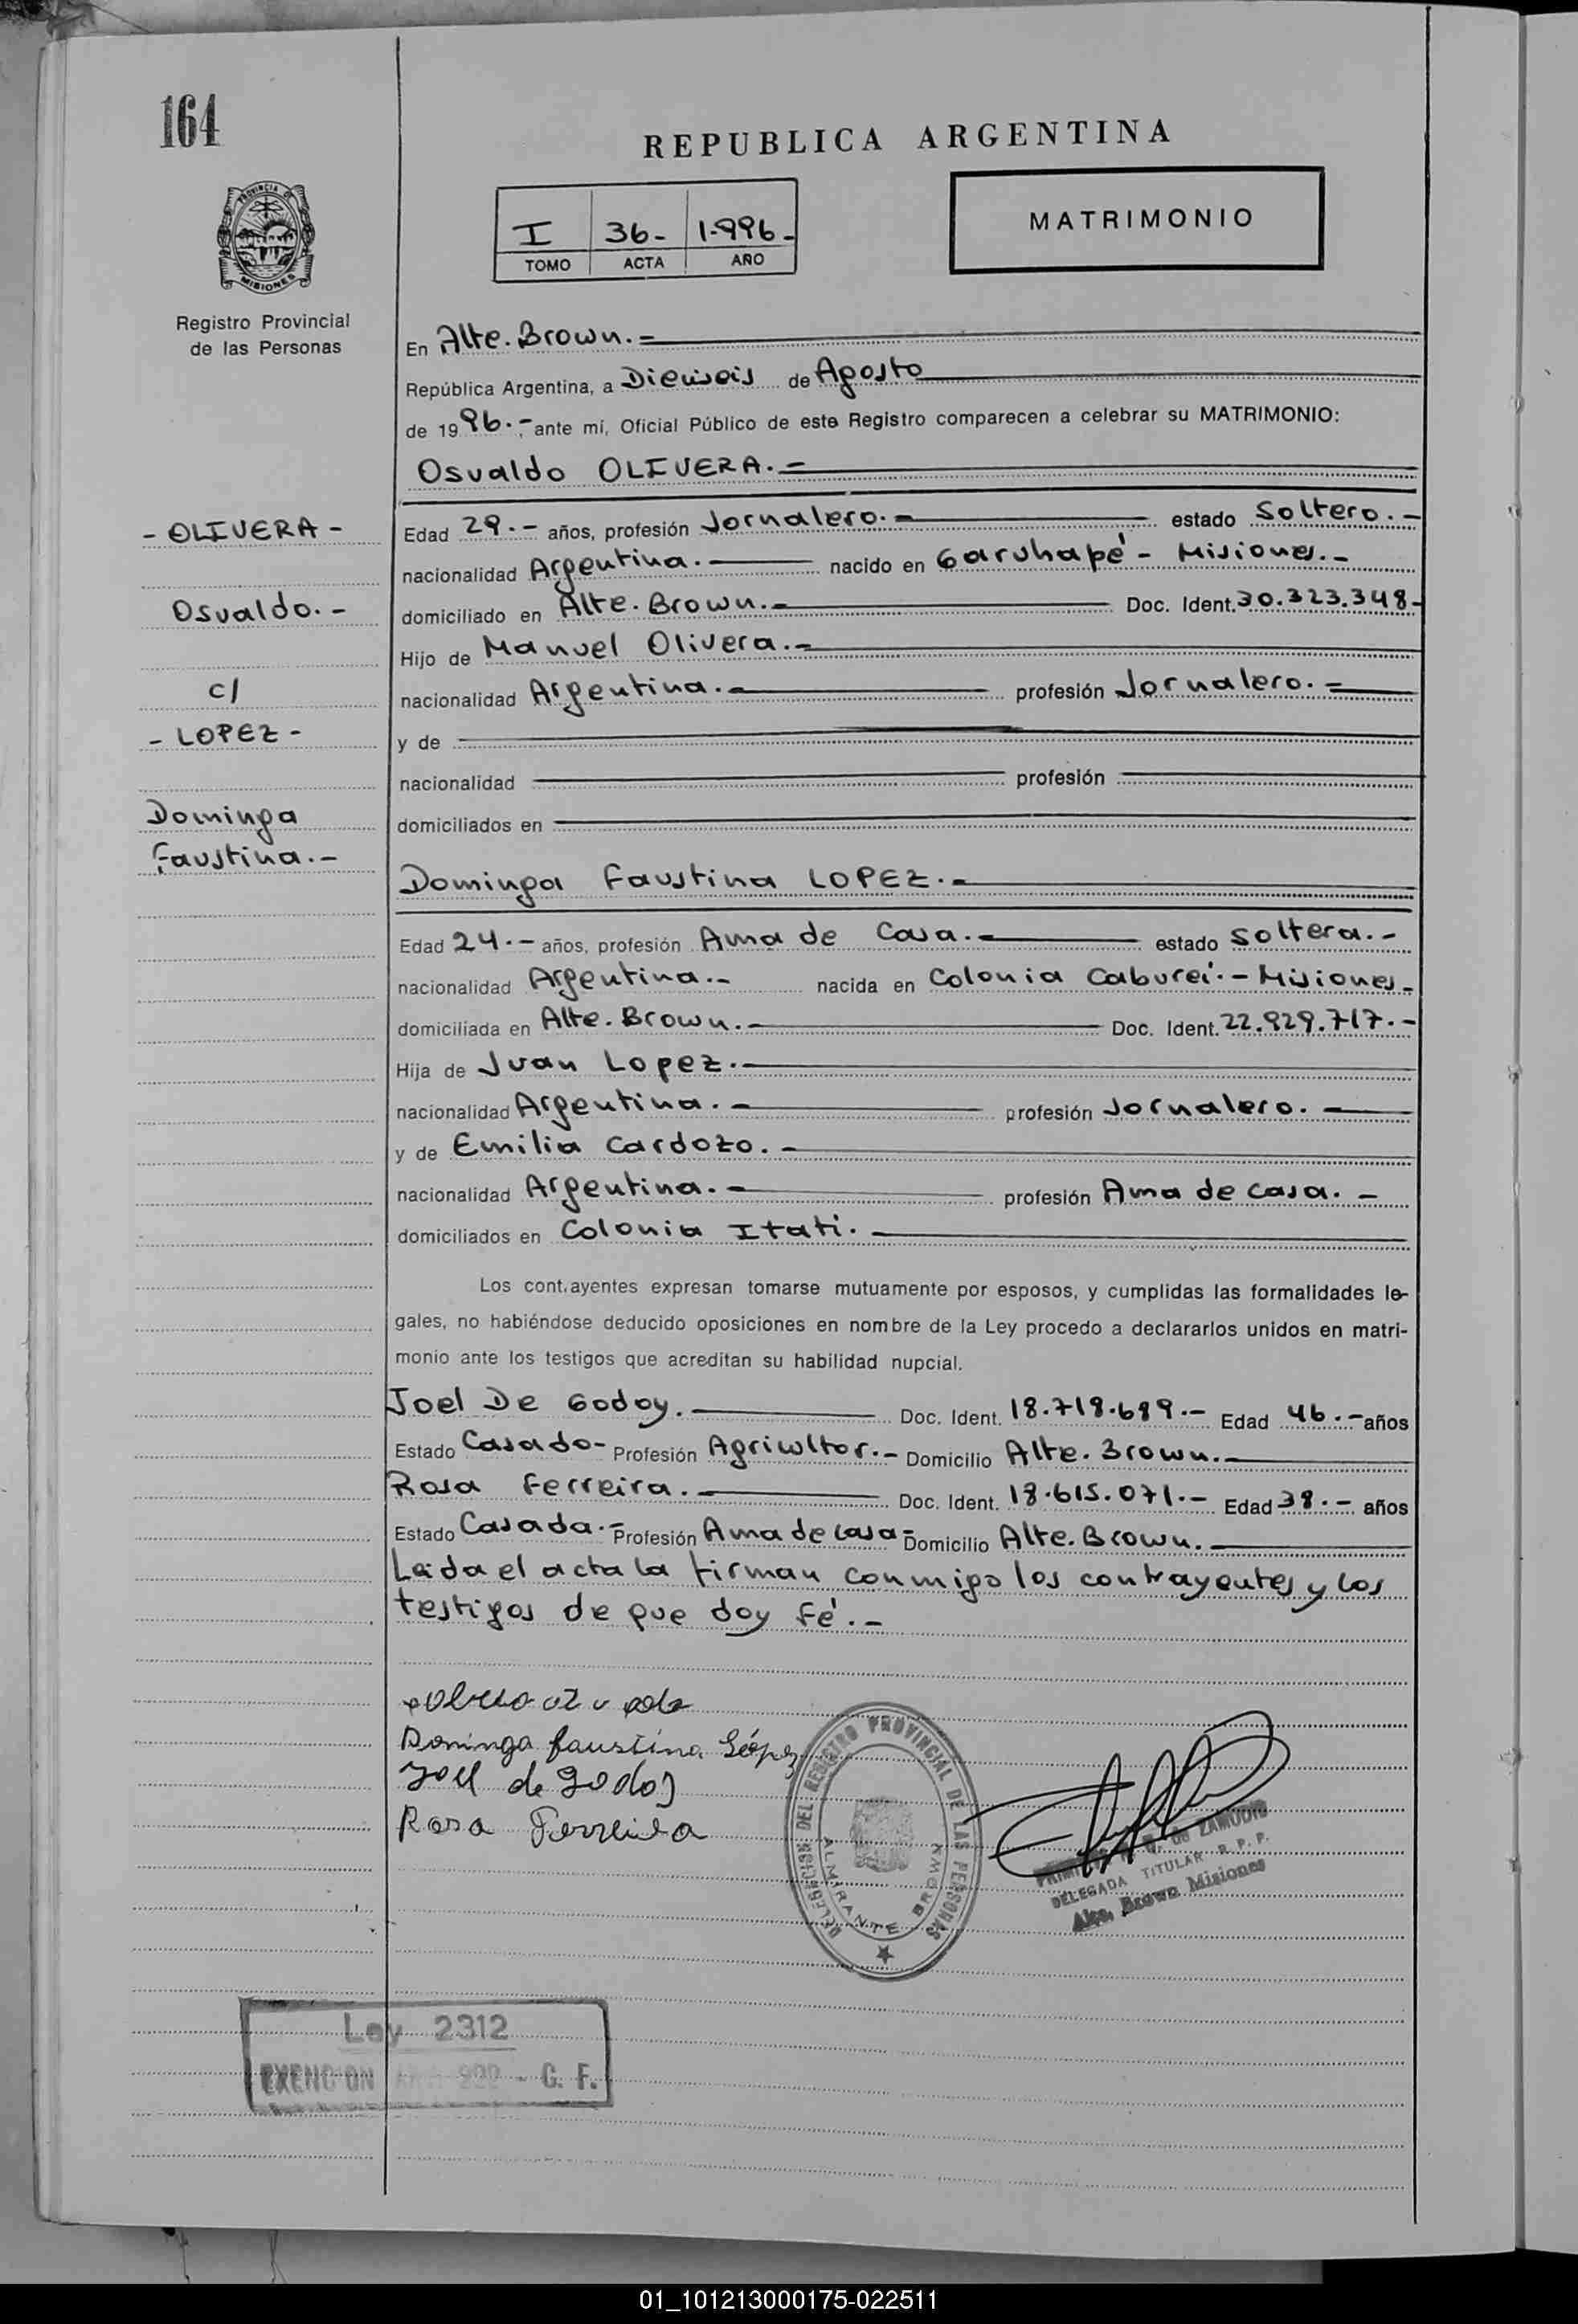 164
REPUBLICA ARGENTINA
I 36- 1.996-
TOMO ACTA AÑO
MATRIMONIO
PROVINCIA DE
MISIONES
Registro Provincial
de las Personas
En Alte. Brown.-
República Argentina, a Dieciseis de Agosto
de 19 96.- ante mí, Oficial Público de este Registro comparecen a celebrar su MATRIMONIO:
Osvaldo OLIVERA.-
- OLIVERA -
Osvaldo.-
c/
- LOPEZ -
Dominga
Faustina.-
Edad 29.- años, profesión Jornalero.- estado Soltero.-
nacionalidad Argentina.- nacido en Garuhapé - Misiones.-
domiciliado en Alte. Brown.- Doc. Ident. 30.323.348-
Hijo de Manuel Olivera.-
nacionalidad Argentina.- profesión Jornalero.-
y de
nacionalidad profesión
domiciliados en
Dominga Faustina LOPEZ.-
Edad 24.- años, profesión Ama de Casa.- estado Soltera.-
nacionalidad Argentina.- nacida en Colonia Cabureí.- Misiones-
domiciliada en Alte. Brown.- Doc. Ident. 22.929.717.-
Hija de Juan Lopez.-
nacionalidad Argentina.- profesión Jornalero.-
y de Emilia Cardozo.-
nacionalidad Argentina.- profesión Ama de casa.-
domiciliados en Colonia Itati.-
Los cont.ayentes expresan tomarse mutuamente por esposos, y cumplidas las formalidades le-
gales, no habiéndose deducido oposiciones en nombre de la Ley procedo a declararlos unidos en matri-
monio ante los testigos que acreditan su habilidad nupcial.
Joel De Godoy.- Doc. Ident. 18.719.699.- Edad 46.- años
Estado Casado- Profesión Agricultor.- Domicilio Alte. Brown.-
Rosa Ferreira.- Doc. Ident. 18.615.071.- Edad 38.- años
Estado Casada.- Profesión Ama de casa- Domicilio Alte. Brown.-
Leida el acta la firman conmigo los contrayentes y los
testigos de que doy fé.-
Dominga faustina López
Joel de godoy
Rosa Ferreira
DELEGACION DEL REGISTRO PROVINCIAL DE LAS PERSONAS
ALMIRANTE BROWN
de ZAMUDIO
DELEGADA TITULAR R. P. P.
Alte. Brown Misiones
Ley 2312
EXENCION - G. F.
01_101213000175-022511